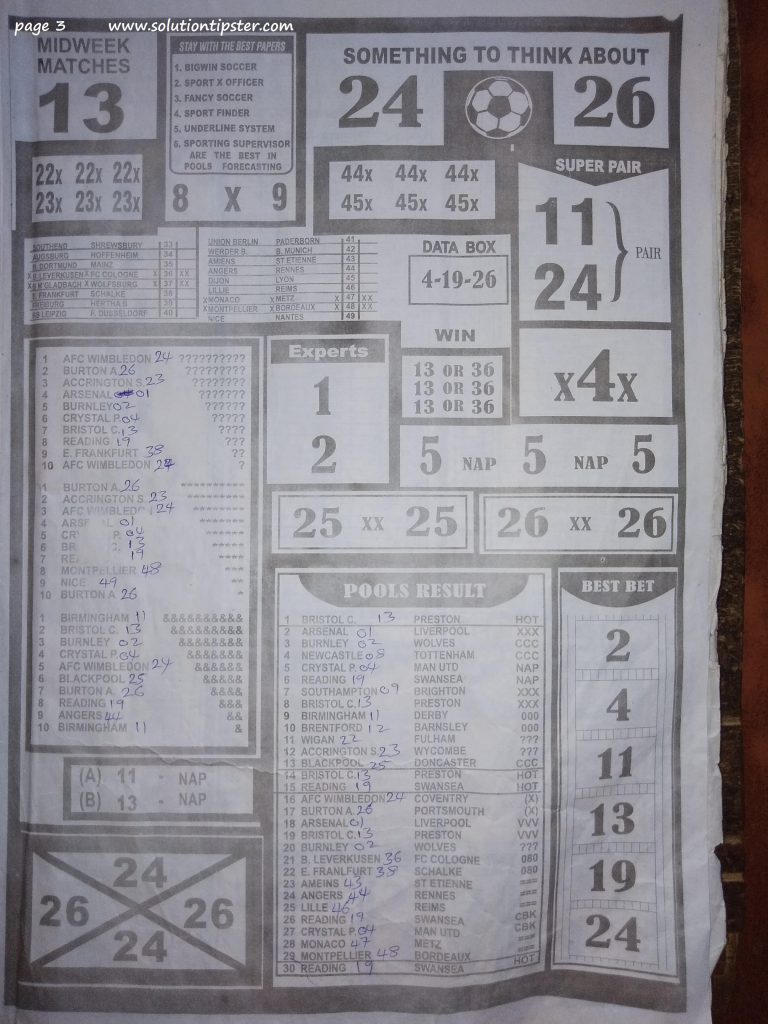 page 3 www.solutiontipster.com
MIDWEEK
MATCHES
13
STAY WITH THE BEST PAPERS
1. BIGWIN SOCCER
2. SPORT X OFFICER
3. FANCY SOCCER
4. SPORT FINDER
5. UNDERLINE SYSTEM
6. SPORTING SUPERVISOR
ARE THE BEST IN
POOLS FORECASTING
8 X 9
SOMETHING TO THINK ABOUT
24 26
22x 22x 22x
23x 23x 23x
44x 44x 44x
45x 45x 45x
SUPER PAIR
11
24
PAIR
SOUTHEND SHREWSBURY 33
AUGSBURG HOFFENHEIM 34
B. DORTMUND MAINZ 35
B. LEVERKUSEN FC COLOGNE X 36 XX
M'GLADBACH X WOLFSBURG X 37 XX
E. FRANKFURT SCHALKE 38
FREIBURG HERTHA B 39
RB LEIPZIG F. DUSSELDORF 40
UNION BERLIN PADERBORN 41
WERDER B. B. MUNICH 42
AMIENS ST ETIENNE 43
ANGERS RENNES 44
DIJON LYON 45
LILLE REIMS 46
X MONACO X METZ X 47 XX
X MONTPELLIER X BORDEAUX X 48 XX
NICE NANTES 49
DATA BOX
4-19-26
WIN
13 OR 36
13 OR 36
13 OR 36
x4x
Experts
1
2
5 NAP 5 NAP 5
25 xx 25
26 xx 26
1 AFC WIMBLEDON 24 ??????????
2 BURTON A. 26 ?????????
3 ACCRINGTON S. 23 ????????
4 ARSENAL 01 ???????
5 BURNLEY 02 ??????
6 CRYSTAL P. 04 ?????
7 BRISTOL C. 13 ????
8 READING 19 ???
9 E. FRANKFURT 38 ??
10 AFC WIMBLEDON 24 ?
1 BURTON A. 26 **********
2 ACCRINGTON S. 23 *********
3 AFC WIMBLEDON 24 ********
4 ARS AL 01 *******
5 CR P. 04 ******
6 BR C. 13 *****
7 REA 19 ****
8 MONTPELLIER 48 ***
9 NICE 49 **
10 BURTON A. 26 *
1 BIRMINGHAM 11 &&&&&&&&&&
2 BRISTOL C. 13 &&&&&&&&&
3 BURNLEY 02 &&&&&&&&
4 CRYSTAL P. 04 &&&&&&&
5 AFC WIMBLEDON 24 &&&&&&
6 BLACKPOOL 25 &&&&&
7 BURTON A. 26 &&&&
8 READING 19 &&&
9 ANGERS 44 &&
10 BIRMINGHAM 11 &
(A) 11 - NAP
(B) 13 - NAP
24
26 26
24
POOLS RESULT
1 BRISTOL C. 13 PRESTON HOT
2 ARSENAL 01 LIVERPOOL XXX
3 BURNLEY 02 WOLVES CCC
4 NEWCASTLE 08 TOTTENHAM CCC
5 CRYSTAL P. 04 MAN UTD NAP
6 READING 19 SWANSEA NAP
7 SOUTHAMPTON 09 BRIGHTON XXX
8 BRISTOL C. 13 PRESTON XXX
9 BIRMINGHAM 11 DERBY 000
10 BRENTFORD 12 BARNSLEY 000
11 WIGAN 22 FULHAM ???
12 ACCRINGTON S. 23 WYCOMBE ???
13 BLACKPOOL 25 DONCASTER CCC
14 BRISTOL C. 13 PRESTON HOT
15 READING 19 SWANSEA HOT
16 AFC WIMBLEDON 24 COVENTRY (X)
17 BURTON A. 26 PORTSMOUTH (X)
18 ARSENAL 01 LIVERPOOL VVV
19 BRISTOL C. 13 PRESTON VVV
20 BURNLEY 02 WOLVES ???
21 B. LEVERKUSEN 36 FC COLOGNE 080
22 E. FRANLFURT 38 SCHALKE 080
23 AMEINS 43 ST ETIENNE ===
24 ANGERS 44 RENNES ===
25 LILLE 46 REIMS ===
26 READING 19 SWANSEA CBK
27 CRYSTAL P. 04 MAN UTD CBK
28 MONACO 47 METZ ===
29 MONTPELLIER 48 BORDEAUX ===
30 READING 19 SWANSEA HOT
BEST BET
2
4
11
13
19
24